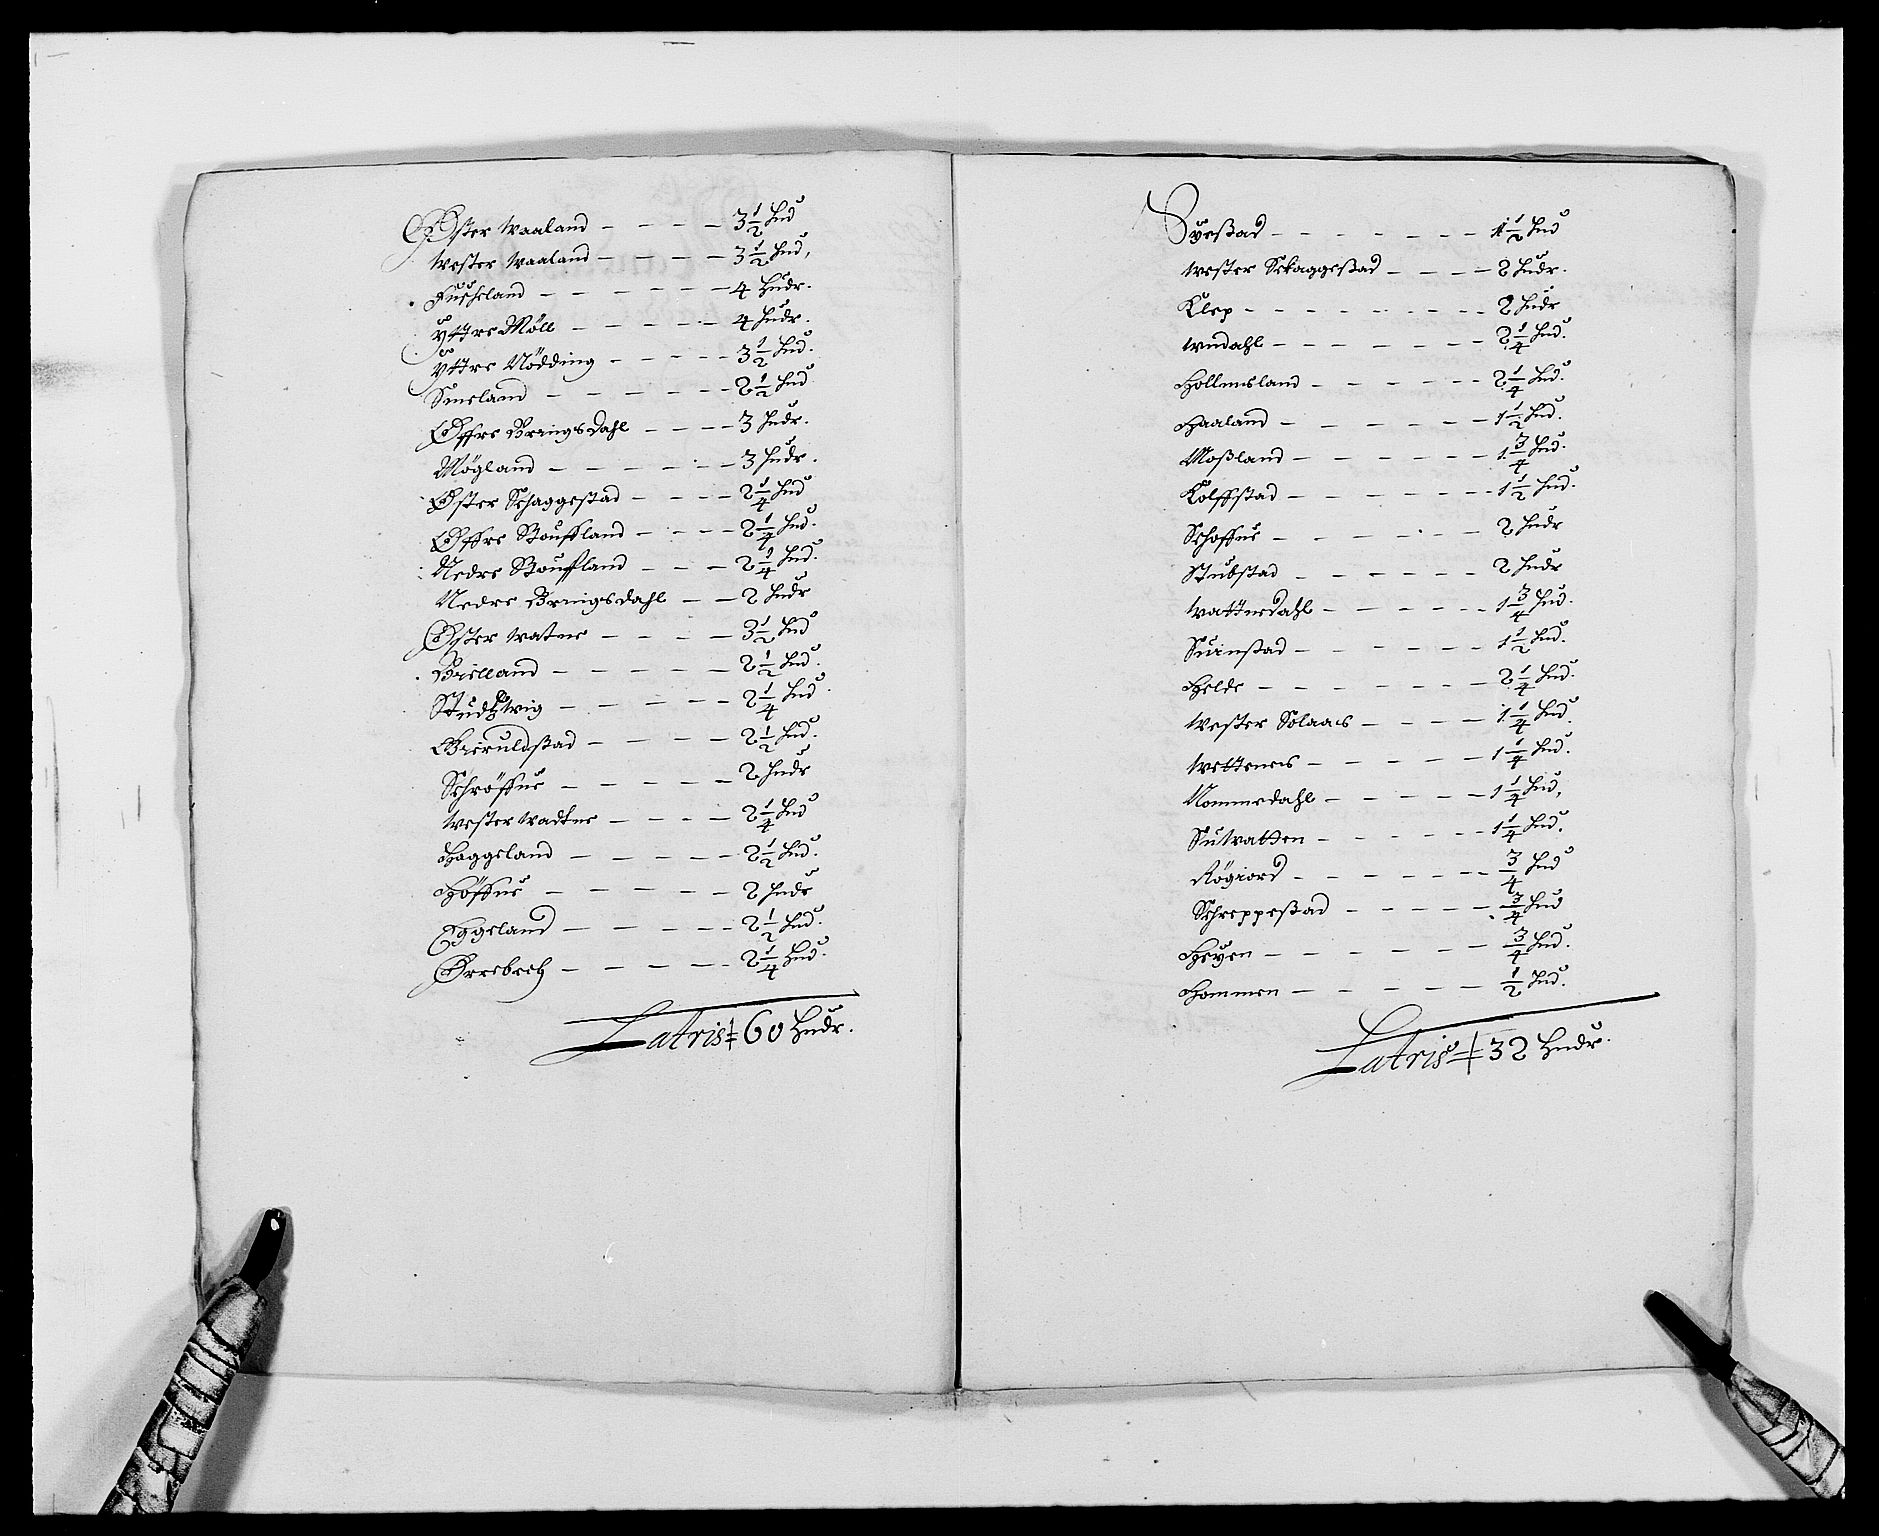 Øster Waaland - - - - 3 1/2 Hud
Wester Waaland - - - - 3 1/2 Hud,
Fuscheland - - - - - - 4 Hudr.
Yttre Møll - - - - - 4 Hudr.
Yttre Nödding - - - - 3 1/2 Hud.
Smeland - - - - - 2 1/2 Hud
Øffre Bringsdahl - - - - 3 Hudr.
Mögland - - - - - - 3 Hudr.
Øster Schaggestad - - - - 2 1/4 Hud
Øffre Stouffland - - - - 2 1/4 Hud.
Nedre Stoufland - - - 2 1/4 Hud.
Nedre Bringsdahl - - 2 Hudr
Øster Watne - - - - 3 1/2 Hud
Bielland - - - - - 2 1/2 Hud.
Studtzwig - - - - - 2 1/4 Hud
Gieruldstad - - - - 2 1/2 Hud.
Schröffue - - - - - 2 Hudr
Wester Wadtne - - - - 2 1/4 Hud
Haggeland - - - - - 2 1/2 Hud.
Höffue - - - - - 2 Hudr
Eggeland - - - - - 2 1/2 Hud.
Ørrebech - - - - - 2 1/4 Hud.
Latris 60 Hudr.
Sveßad - - - - - - - 1 1/2 Hud
Wester Sckaggeßad - - - - 2 Hudr.
Klep - - - - - - - - 2 Hudr
Undahl - - - - - - 2 1/4 Hud.
Hollensland - - - - - 2 1/4 Hud.
Haaland - - - - - - 1 1/2 Hud.
Moßland - - - - - - 1 3/4 Hud.
Kolffstad - - - - - - 1 1/2 Hud.
Schoffue - - - - - - 2 Hudr
Stubstad - - - - - - 2 Hudr
Wattnedahl - - - - - 1 3/4 Hud.
Suinßad - - - - - - 1 1/2 Hud.
Helde - - - - - - - 2 1/4 Hud.
Wester Solaas - - - - 1 1/4 Hud.
Wettenes - - - - - 1 1/4 Hud.
Nommedahl - - - - - 1 1/4 Hud,
Sutvatten - - - - - 1 1/4 Hud.
Rögiord - - - - - - 3/4 Hud
Schreppeßad - - - - - 3/4 Hud
Heyen - - - - - - 3/4 Hud.
Hommen - - - - - 1/2 Hud.
Latris 32 Hudr.